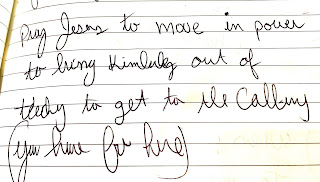 Pray Jesus to move in power
to bring Kimberly out of
to get to the Calling
(You have for her)